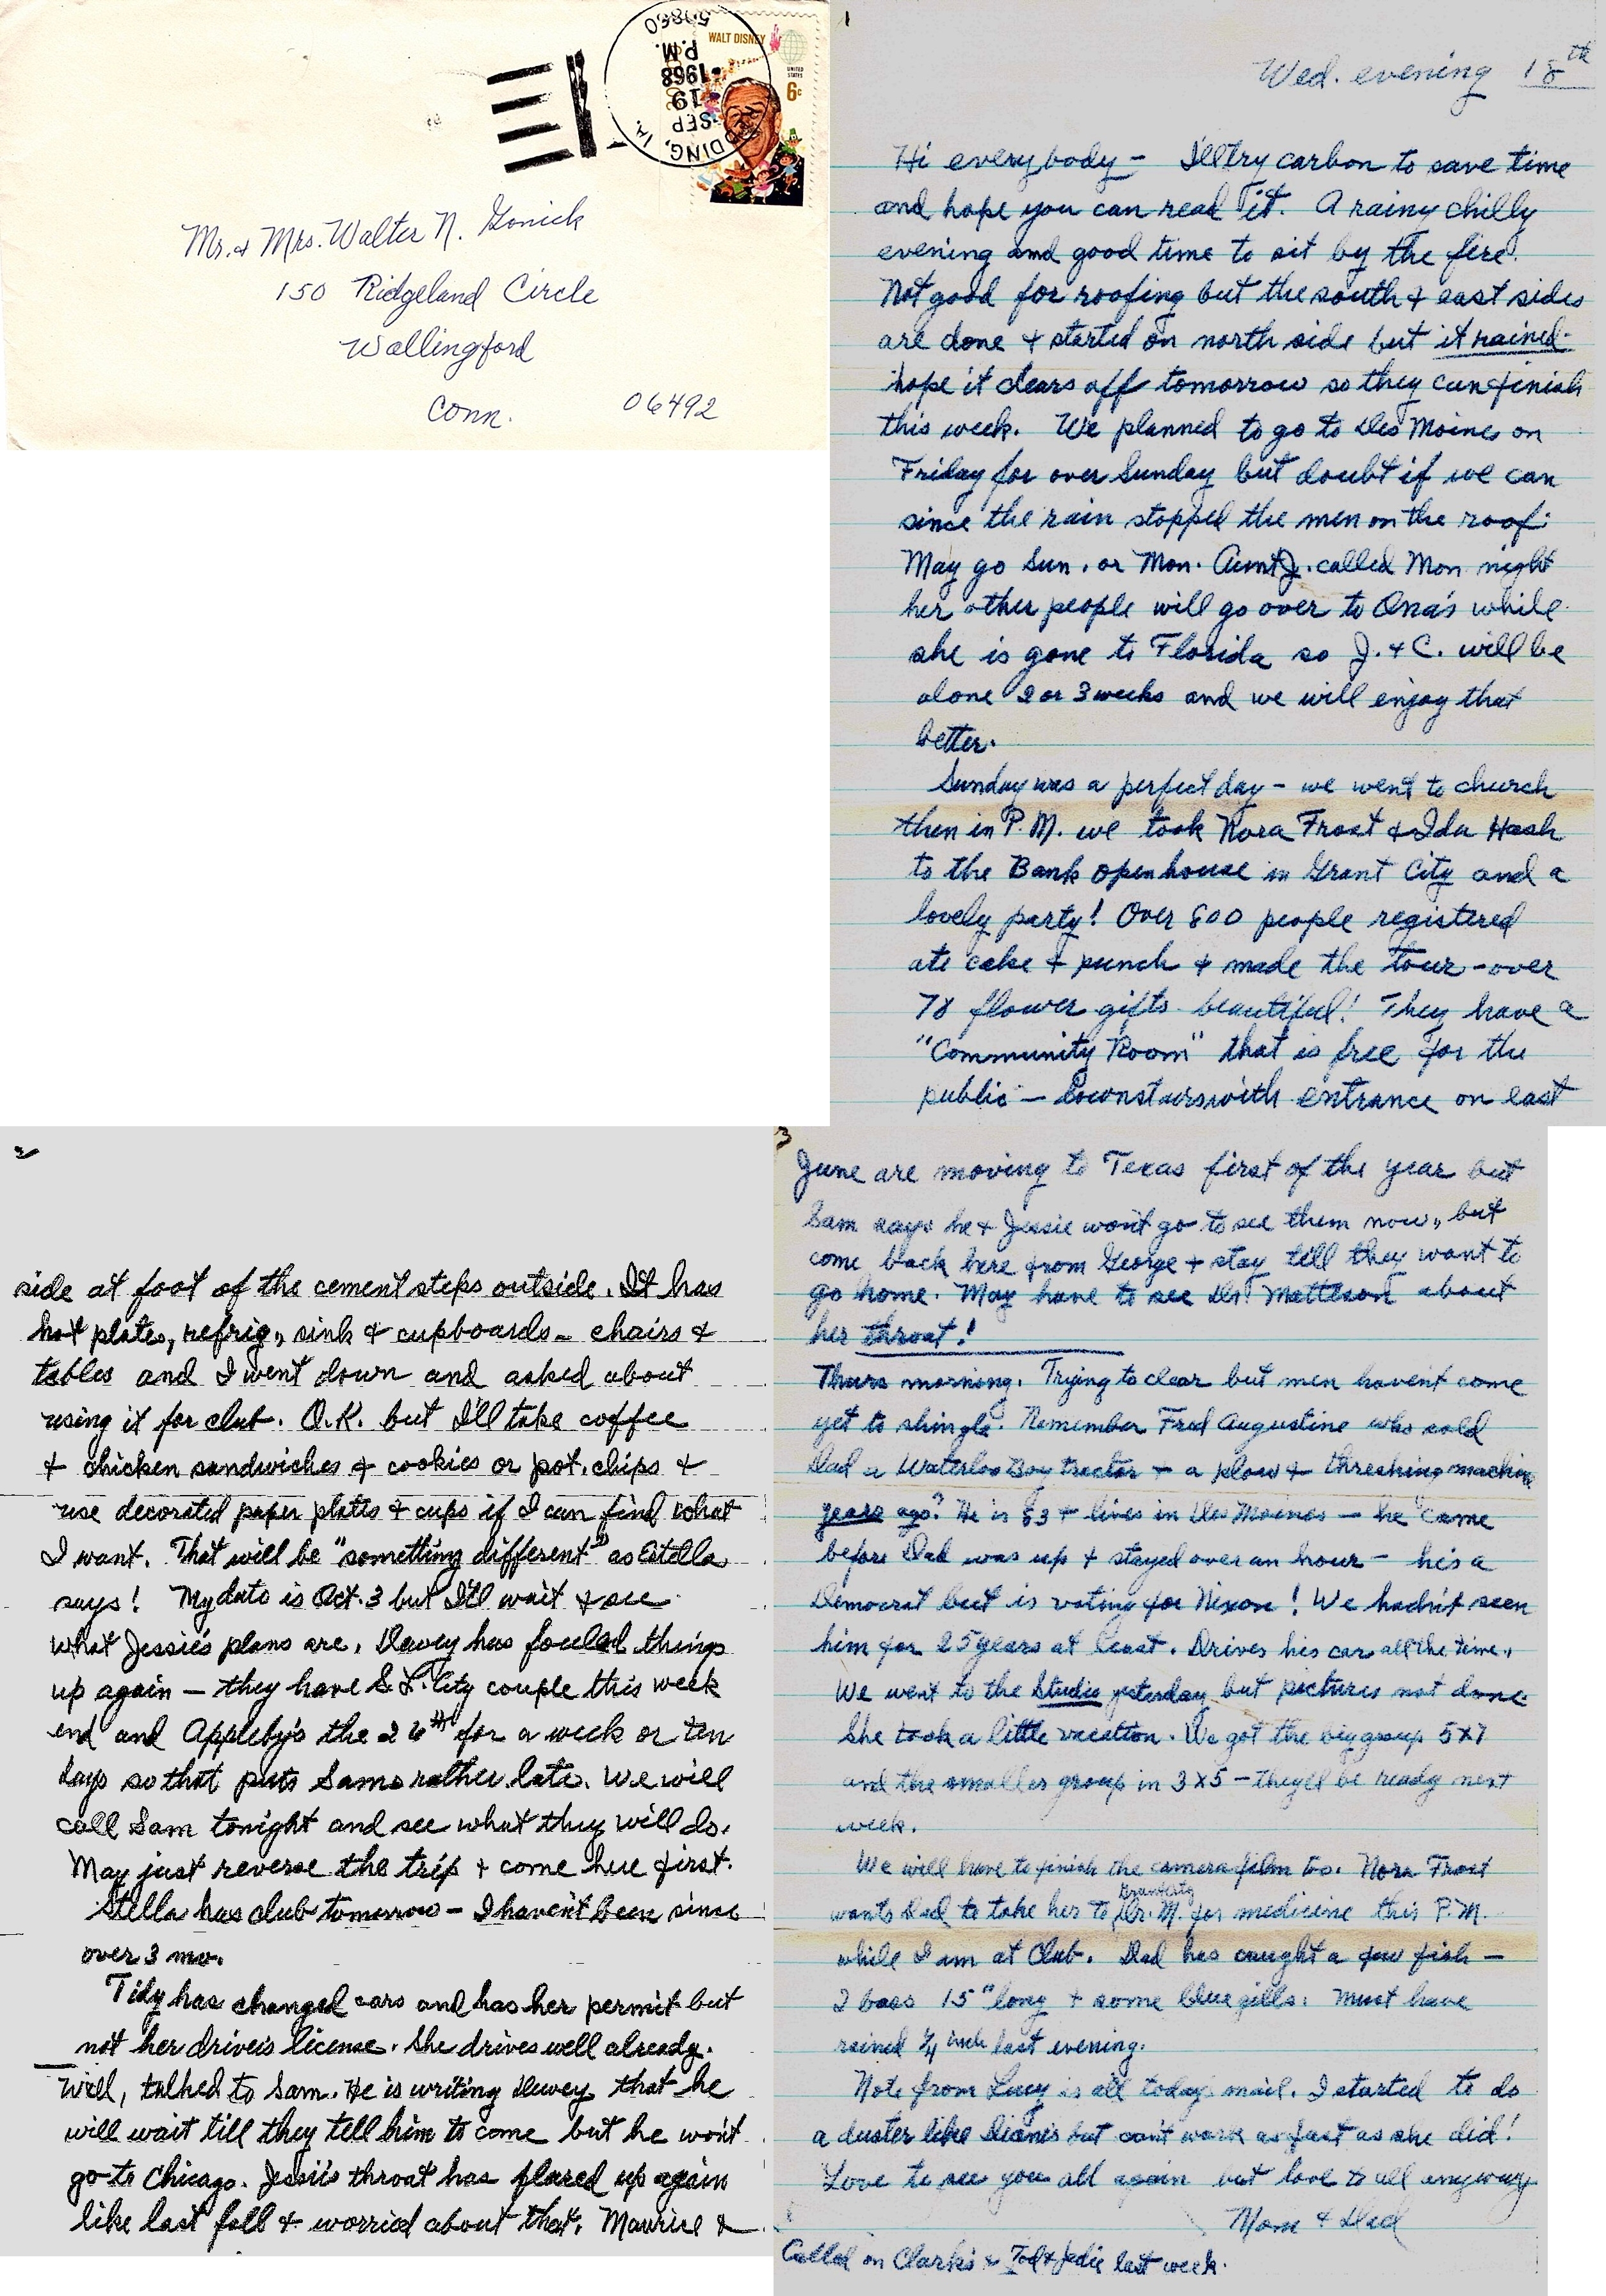 WALT DISNEY
UNITED STATES
6c
DDING, IA.
SEP
19
1968
P.M.
50860
Mr. & Mrs. Walter N. Gonick
150 Ridgeland Circle
Wallingford
Conn. 06492
1
Wed. evening 18th
Hi everybody - I'll try carbon to save time
and hope you can read it. A rainy chilly
evening and good time to sit by the fire.
Not good for roofing but the south & east sides
are done & started on north side but it rained-
hope it clears off tomorrow so they can finish
this week. We planned to go to Des Moines on
Friday for over Sunday but doubt if we can
since the rain stopped the men on the roof.
May go Sun. or Mon. Aunt J. called Mon night
her other people will go over to Ona's while
she is gone to Florida so J. & C. will be
alone 2 or 3 weeks and we will enjoy that
better.
Sunday was a perfect day - we went to church
then in P.M. we took Nora Frost & Ida Hash
to the Bank open house in Grant City and a
lovely party! Over 800 people registered
ate cake & punch & made the tour - over
78 flower gifts beautiful! They have a
"Community Room" that is free for the
public - Downstairs with entrance on east
2
side at foot of the cement steps outside. It has
hot plates, refrig., sink & cupboards - chairs &
tables and I went down and asked about
using it for club. O.K. but I'll take coffee
& chicken sandwiches & cookies or pot. chips &
use decorated paper plates & cups if I can find what
I want. That will be "something different" as Estella
says! My date is Oct. 3 but I'll wait & see
what Jessie's plans are. Dewey has fouled things
up again - they have S. L. City couple this week
end and Appleby's the 26th for a week or ten
days so that puts Sams rather late. We will
call Sam tonight and see what they will do.
May just reverse the trip & come here first.
Stella has club tomorrow - I haven't been since
over 3 mo.
Tidy has changed cars and has her permit but
not her driver's license. She drives well already.
Well, talked to Sam. He is writing Dewey that he
will wait till they tell him to come but he won't
go to Chicago. Jessie's throat has flared up again
like last fall & worried about that. Maurice &
3
June are moving to Texas first of the year but
Sam says he & Jessie won't go to see them now, but
come back here from George & stay till they want to
go home. May have to see Dr. Matteson about
her throat!
Thurs morning. Trying to clear but men haven't come
yet to shingle. Remember Fred Augustine who sold
Dad a Waterloo Boy tractor & a plow & threshing machine
years ago? He is 83 & lives in Des Moines - he came
before Dad was up & stayed over an hour - he's a
Democrat but is voting for Nixon! We hadn't seen
him for 25 years at least. Drives his car all the time.
We went to the Studio yesterday but pictures not done.
She took a little vacation. We got the big group 5x7
and the smaller group in 3x5 - they'll be ready next
week.
We will have to finish the camera film too. Nora Frost
wants Dad to take her to Dr. M. for medicine this P.M.
while I am at Club. Dad has caught a few fish -
2 bass 15" long & some blue gills. Must have
rained 1/4 inch last evening.
Note from Lucy is all today's mail. I started to do
a duster like Diane's but can't work as fast as she did!
Love to see you all again but love to all anyway
Mom & Dad
Called on Clarks & Tod & Jodie last week.